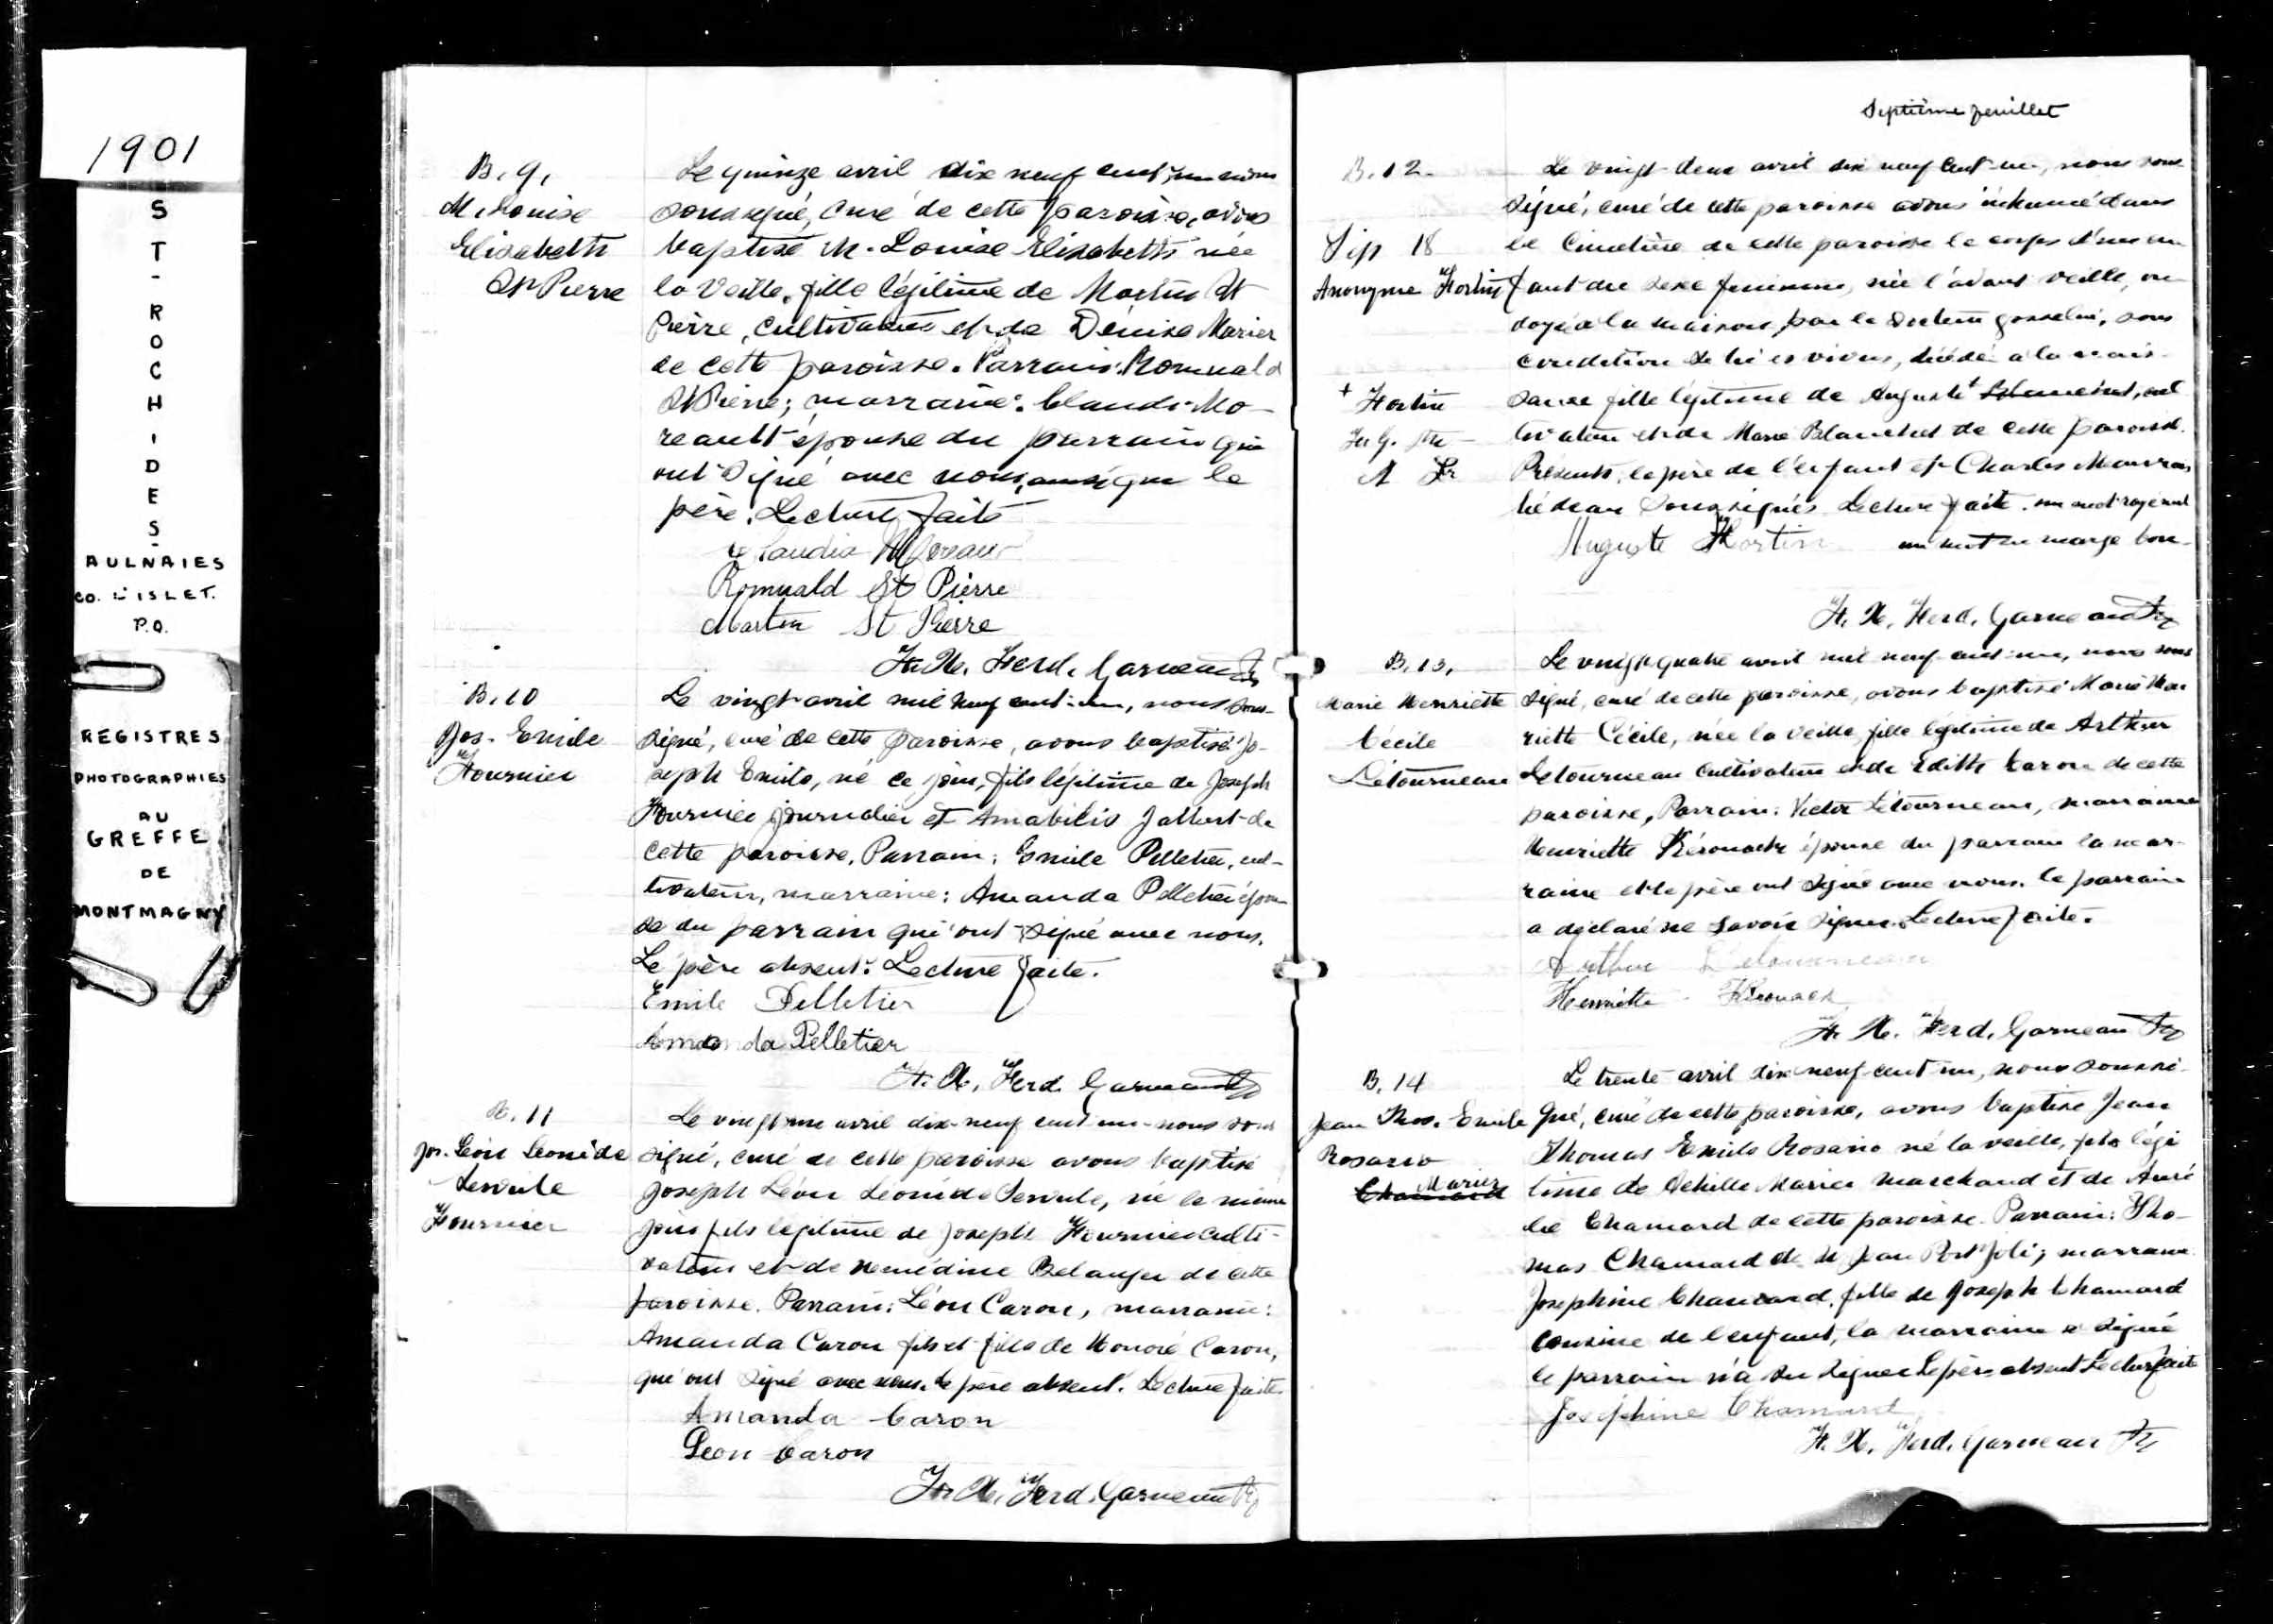 1901
ST-ROCH-DES-
AULNAIES
CO. L'ISLET.
P.Q.
REGISTRES
PHOTOGRAPHIES
AU
GREFFE
DE
MONTMAGNY
B. 9,
M. Louise
Elisabeth
St Pierre
Le quinze avril dix neuf cent un nous
soussigné, curé de cette paroisse, avons
baptisé M. Louise Elisabeth née
la veille, fille légitime de Martin St
Pierre, cultivateur et de Dénise Marier
de cette paroisse. Parrain: Romuald
St Pierre; marraine: Claudi Mo-
reault épouse du parrain qui
ont signé avec nous, ainsi que le
père. Lecture faite
Claudia Moreau
Romuald St Pierre
Martin St Pierre
F. X. Ferd. Garneau Ptr
B. 10
Jos. Emile
Fournier
Le vingt avril mil neuf cent-un, nous sous-
signé, curé de cette paroisse, avons baptisé Jo-
seph Emile, né ce jour, fils légitime de Joseph
Fournier journalier et Amabilis Jalbert de
cette paroisse. Parrain: Emile Pelletier, cul-
tivateur, marraine: Amanda Pelletier épou-
se du parrain qui ont signé avec nous.
Le père absent. Lecture faite.
Emile Pelletier
Amanda Pelletier
F. X. Ferd. Garneau Ptr
B. 11
Jos. Léon Leonide
Fournier
Le vingt un avril dix-neuf cent un nous sous
signé, curé de cette paroisse avons baptisé
Joseph Léon Léonide né le même
jour fils légitime de Joseph Fournier culti-
vateur et de Belanger de cette
paroisse. Parrain: Léon Caron, marraine:
Amanda Caron fils et fille de Honoré Caron,
qui ont signé avec nous. Le père absent. Lecture faite.
Amanda Caron
Leon Caron
F. X. Ferd. Garneau Ptr
Septième feuillet
B. 12
Sép 18
Anonyme Fortin
+ Fortin
Le vingt-deux avril dix neuf cent-un, nous sous-
signé, curé de cette paroisse avons inhumé dans
le Cimetière de cette paroisse le corps d'un en-
fant du sexe féminin, née l'avant veille, on
doyé à la maison par le Docteur Gosselin, sous
condition décédé à la nais-
sance fille légitime de Auguste + Blanchet, cul
tivateur et de Marie Blanchet de cette paroisse.
Présents, le père de l'enfant et Charles
bédeau soussignés Lecture faite. un mot rayé nul
un mot en marge bon-
Auguste Fortin
F. X. Ferd. Garneau Ptr
B. 13,
Marie Henriette
Cécile
Létourneau
Le vingt quatre avril mil neuf cent-un, nous sous
signé, curé de cette paroisse, avons baptisé Marie Hen
riette Cécile, née la veille, fille légitime de Arthur
Letourneau cultivateur et de Edith Caron de cette
paroisse, Parrain: Victor Létourneau, marraine
Henriette Kérouack épouse du parrain la mar-
raine et le père ont signé avec nous. le parrain
a déclaré ne savoir signer. Lecture faite.
Arthur Letourneau
Henriette Kérouack
F. X. Ferd. Garneau Ptr
B. 14
Jean Thos. Emile
Rosario
Marier
Chamard
Le trente avril dix neuf cent un, nous soussi-
gné, curé de cette paroisse, avons baptisé Jean
Thomas Emile Rosario né la veille, fils légi
time de Achille Marier marchand et de Auré
lie Chamard de cette paroisse. Parrain: Tho-
mas Chamard de St Jean Port Joli; marraine
Josephine Chamard, fille de Joseph Chamard
cousine de l'enfant, la marraine a signé
le parrain n'a su signer Le père absent Lecture faite
Joséphine Chamard
F. X. Ferd. Garneau Ptr